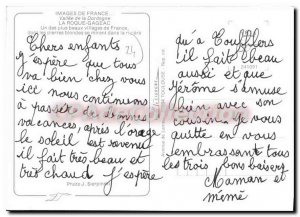 IMAGES DE FRANCE
Vallée de la Dordogne
LA ROQUE-GAGEAC
Un des plus beaux villages de France,
ses pierres blondes se mirent dans la rivière
24
Chers enfants
J'espère que tous
va bien chez vous
ice nous continuons
à passer de bonnes
vacances, après l'orage
le soleil est revenu
il fait très beau et
très chaud J'espère
qu'à Toufflers
il fait beau
aussi et que
Jérôme s'amuse
bien avec son
cousin, je vous
quitte en vous
embrassant tous
les trois bons baisers
Maman et
mémé